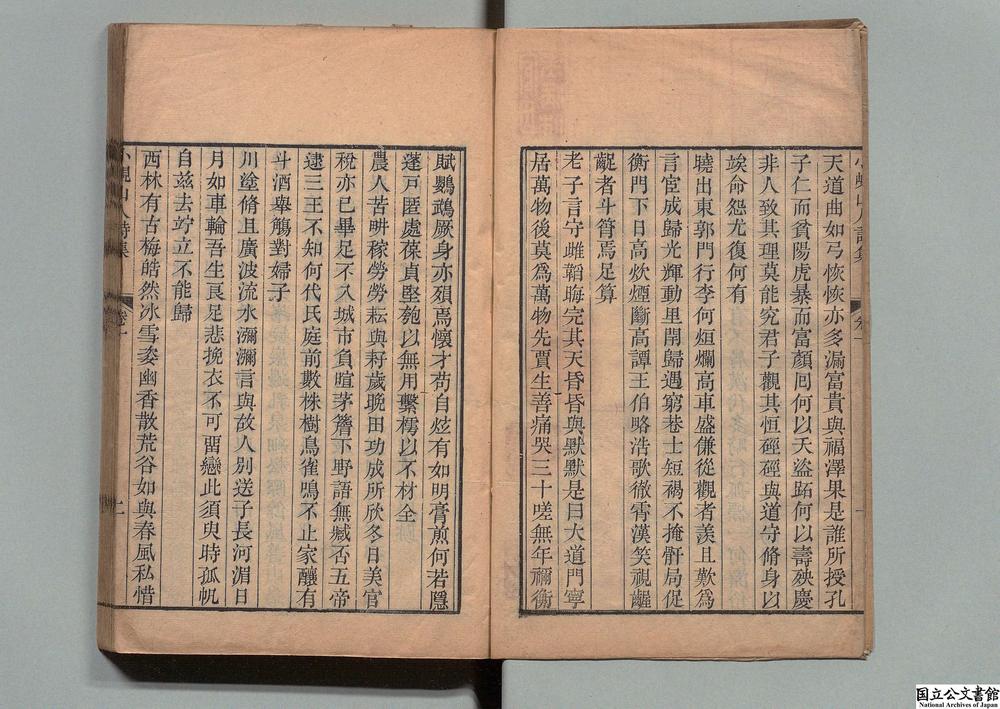 天道曲如弓恢恢亦多漏富貴與福澤果是誰所授孔
子仁而貧陽虎暴而富顏回何以夭盜跖何以壽殃慶
非人致其理莫能究君子觀其恒硜硜與道守脩身以
竢命怨尤復何有
曉出東郭門行李何烜爛高車盛傔從觀者羨且歎為
言宦成歸光輝動里閈歸遇窮巷士短褐不掩骭局促
衡門下日高炊煙斷高譚王伯略浩歌徹霄漢笑視齷
齪者斗筲焉足算
老子言守雌韜晦完其天昏昏與默默是曰大道門寧
居萬物後莫為萬物先賈生善痛哭三十嗟無年禰衡
賦鸚鵡厥身亦殞焉懷才苟自炫有如明膏煎何若隱
蓬戸匿處葆貞堅匏以無用繫樗以不材全
農人苦畊稼勞勞耘與耔歲晚田功成所欣冬日美官
稅亦已畢足不入城市負暄茅簷下野語無臧否五帝
逮三王不知何代民庭前數株樹鳥雀鳴不止家釀有
斗酒舉觴對婦子
川塗脩且廣波流水瀰瀰言與故人別送子長河湄日
月如車輪吾生良足悲挽衣不可留戀此須臾時孤帆
自茲去竚立不能歸
西林有古梅皓然冰雪姿幽香散荒谷如與春風私惜
卷十
二
国立公文書館
National Archives of Japan